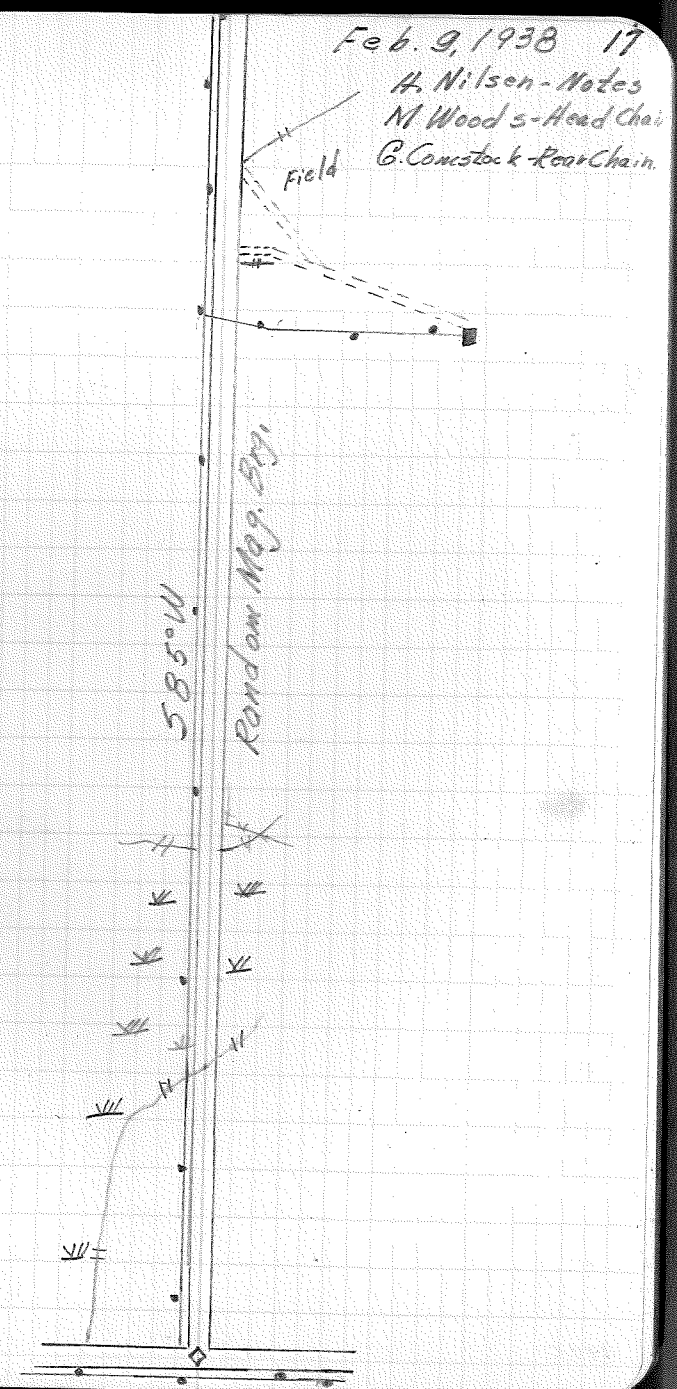 Feb. 9, 1938 17
H. Nilsen - Notes
M Woods - Head Chai
G. Comstock - Rear Chain.
Field
Random Mag. Brg.
S85°W